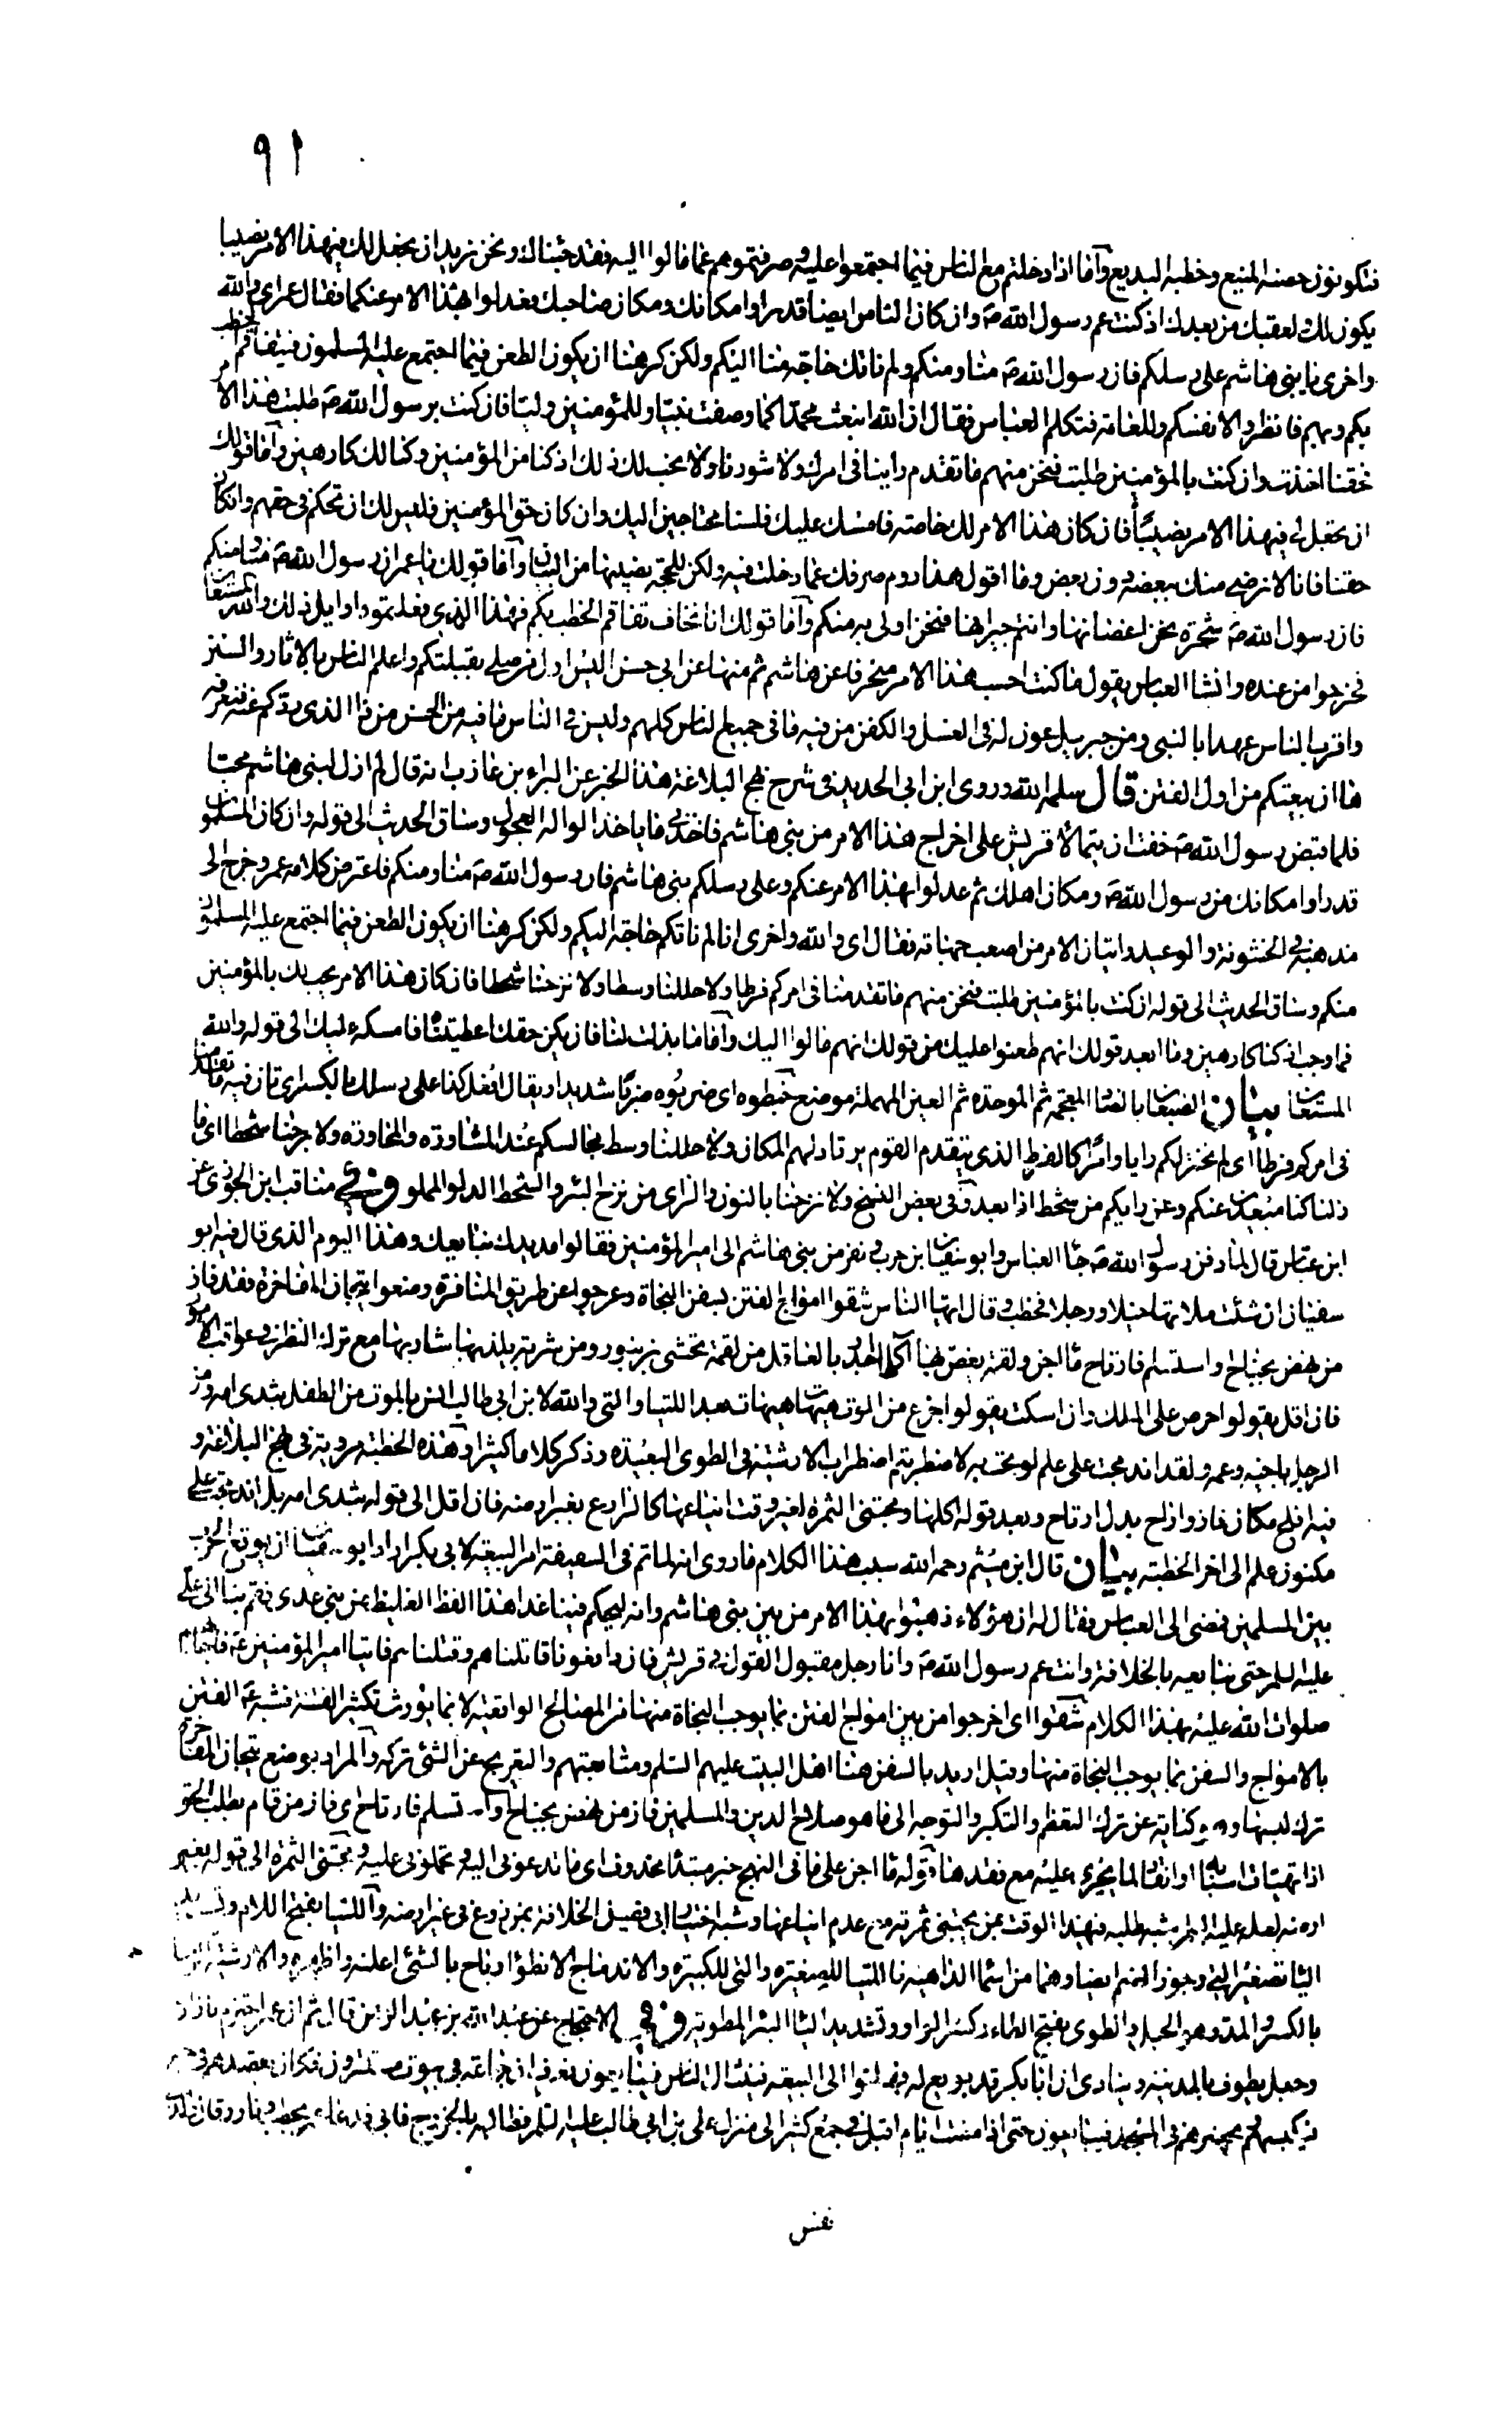 ٩١
فتكونون حصنه المنيع وخطبه البديع وآما اذا دخلتم مع الناس فيما اجتمعوا عليه وصرفتموهم عما مالوا اليه فقد جئناك ونحن نريد ان نجعل لك في هذا الامر نصيبا
يكون لك ولعقبك من بعدك اذ كنت عم رسول الله ص وان كان الناس ايضا قد راوا مكانك ومكان صاحبك فعدلوا بهذا الامر عنكما فقال عمر اي والله
واخرى يا بني هاشم على رسلكم فان رسول الله ص منا ومنكم ولم ناتك حاجة منا اليكم ولكن كرهنا ان يكون الطعن فيما اجتمع عليه المسلمون فيتفاقم الخطب
بكم وبهم فانظروا لانفسكم وللعامة فتكلم العباس فقال ان الله ابتعث محمدا كما وصفت نبيا وللمؤمنين وليا فان كنت برسول الله ص طلبت هذا الامر
فحقنا اخذت وان كنت بالمؤمنين طلبت فنحن منهم ما تقدم راينا في امرك ولا شورنا ولا نحب لك ذلك اذ كنا من المؤمنين وكنا لك كارهين وآما قولك
ان نجعل لي في هذا الامر نصيبًا فان كان هذا الامر لك خاصة فامسك عليك فلسنا محتاجين اليك وان كان حق المؤمنين فليس لك ان تحكم في حقهم وان كان
حقنا فانا لا نرضى منك ببعضه دون بعض وما اقول هذا روم صرفك عما دخلت فيه ولكن للحجة نصيبها من البيان وآما قولك يا عمر ان رسول الله ص منا ومنكم
فان رسول الله ص شجرة نحن اغصانها وانتم جيرانها فنحن اولى به منكم وآما قولك انا نخاف تفاقم الخطب بكم فهذا الذي فعلتموه اوايل ذلك والله المستعان
فخرجوا من عنده وانشا العباس يقول ما كنت احسب هذا الامر منحرفا عن هاشم ثم منها عن ابي حسن اليس اول من صلى بقبلتكم واعلم الناس بالاثار والسنن
واقرب الناس عهدا بالنبي ومن جبريل عون له في الغسل والكفن من فيه ما في جميع الناس كلهم وليس في الناس ما فيه من الحسن من ذا الذي ردكم عنه فنعرفه
ها ان بيعتكم من اول الفتن قال سلمه الله وروى ابن ابي الحديد في شرح نهج البلاغة هذا الخبر عن البراء بن عازب انه قال لم ازل لبني هاشم محبا
فلما قبض رسول الله ص خفت ان يتمالأ قريش على اخراج هذا الامر من بني هاشم فاخذني ما ياخذ الواله العجول وساق الحديث الى قوله وان كان المسلمون
قد راوا مكانك من رسول الله ص ومكان اهلك ثم عدلوا بهذا الامر عنكم وعلى رسلكم بني هاشم فان رسول الله ص منا ومنكم فاعترض كلامه عمر وخرج الى
مذهبه في الخشونة والوعيد واتيان الامر من اصعب جهاته فقال اي والله واخرى انا لم ناتكم حاجة اليكم ولكن كرهنا ان يكون الطعن فيما اجتمع عليه المسلمون
منكم وساق الحديث الى قوله ان كنت بالمؤمنين طلبت فنحن منهم ما تقدمنا في امركم فرطا ولا حللنا وسطا ولا نزحنا شحطا فان كان هذا الامر يجب لك بالمؤمنين
فما وجب اذ كنا كارهين وما ابعد قولك انهم طعنوا عليك من قولك انهم مالوا اليك وآما ما بذلت لنا فان يكن حقك اعطيتناه فامسكه عليك الى قوله والله
المستعان بيان الضبعان بالضاد المعجمة ثم الموحدة ثم العين المهملة موضع خبطوه اي ضربوه ضربًا شديدا ويقال افعل كذا على رسلك بالكسر اي تان فيه ما تقدمنا
في امركم فرطا اي لم نختر لكم رايا وامرًا كالفرط الذي يتقدم القوم يرتاد لهم المكان ولا حللنا وسط مجالسكم عند المشاورة والمحاورة ولا برحنا شحطا اي ما
زلنا كنا مبعدين عنكم وعن رايكم من شحط اذا بعد وفي بعض النسخ ولا نزحنا بالنون والزاي من نزح البئر والشحط الدلو المملو وفي مناقب ابن الجوزي عن
ابن عباس قال لما دفن رسول الله ص جاء العباس وابو سفيان ابن حرب ونفر من بني هاشم الى امير المؤمنين فقالوا مد يدك نبايعك وهذا اليوم الذي قال فيه ابو
سفيان ان شئت ملاتها خيلا ورجلا فخطب وقال ايها الناس شقوا امواج الفتن بسفن النجاة وعرجوا عن طريق المنافرة وضعوا تيجان المفاخرة فقد فاز
من نهض بجناح واستسلم فارتاح ماء اجن ولقمة يغص بها آكلها اجدر بالعاقل من لقمة تحشى بزنبور ومن شربة يلذ بها شاربها مع ترك النظر في عواقب الامور
فان اقل يقولوا حرص على الملك وان اسكت يقولوا جزع من الموت هيهات هيهات بعد اللتيا والتي والله لابن ابي طالب انس بالموت من الطفل بثدي امه ومن
الرجل باخيه وعمه ولقد اندمجت على علم لو بحت به لاضطربتم اضطراب الارشية في الطوى البعيدة وذكر كلاما كثيرا وهذه الخطبة مروية في نهج البلاغة و
فيه افلح مكان فاز واراح بدل ارتاح وبعد قوله اكلها ومجتني الثمرة لغير وقت ايناعها كالزارع بغير ارضه فان اقل الى قوله بثدي امه بل اندمجت على
مكنون علم الى اخر الخطبة بيان قال ابن ميثم رحمه الله سبب هذا الكلام ما روي انه لما تم في السقيفة امر البيعة لابي بكر اراد ابو سفيان ان يوقع الحرب
بين المسلمين فمضى الى العباس فقال له ان هؤلاء ذهبوا بهذا الامر من بين بني هاشم وانه ليحكم فينا غدا هذا الفظ الغليظ من بني عدي فقم بنا الى علي
عليه السلم حتى نبايعه بالخلافة وانت عم رسول الله ص وانا رجل مقبول القول في قريش فان دافعونا قاتلناهم وقتلناهم فاتيا امير المؤمنين ع فاجابهم
صلوات الله عليه بهذا الكلام شقوا اي اخرجوا من بين امواج الفتن بما يوجب النجاة منها من المصالح الواقعية لا بما يورث تكثير الفتنة فشبه ع الفتن
بالامواج والسفن بما يوجب النجاة منها وقيل اريد بالسفن هنا اهل البيت عليهم السلم ومتابعتهم والتعريج عن الشئ تركه والمراد بوضع تيجان المفاخرة
ترك لبسها وهو كناية عن ترك التعظم والتكبر والتوجه الى ما هو صلاح الدين والمسلمين فاز من نهض بجناح او استسلم فارتاح اي فاز من قام بطلب الحق
اذا تهيات اسبابه او انقاد لما يجري عليه مع فقدها وقوله ماء اجن على ما في النهج خبر مبتدأ محذوف اي ما تدعوني اليه وتحملوني عليه ومجتنى الثمرة الى قوله بغير
ارضه لعله عليه السلم شبه طلبه في هذا الوقت بمن يجتنى ثمرته مع عدم ايناعها وشبه اختيار ابي فضيل الخلافة بمن زرع في غير ارضه واللتيا بفتح اللام وتشديد
اليا تصغير التي وجوز الضم ايضا وهما من اسماء الداهية فاللتيا للصغيرة والتي للكبيرة والاندماج الانطواء وباح بالشئ اعلنه واظهره والارشية الرشا
بالكسر والمد وهو الحبل والطوى بفتح الطاء وكسر الواو وتشديد اليا البئر المطوية وفي الاحتجاج عن عبد الله بن عبد الرحمن قال ثم ان عمر احتزم بازاره
وجعل يطوف بالمدينة وينادي ان ابا بكر قد بويع له فهلموا الى البيعة فينثال الناس فيبايعون فعرف ان جماعة في بيوت مستترون فكان يقصدهم في جمع
فيكبسهم ويحضرهم في المسجد فيبايعون حتى اذا مضت ايام اقبل في جمع كثير الى منزل علي بن ابي طالب عليه السلم فطالبه بالخروج فابى فدعا عمر بحطب ونار وقال والذي
نفس